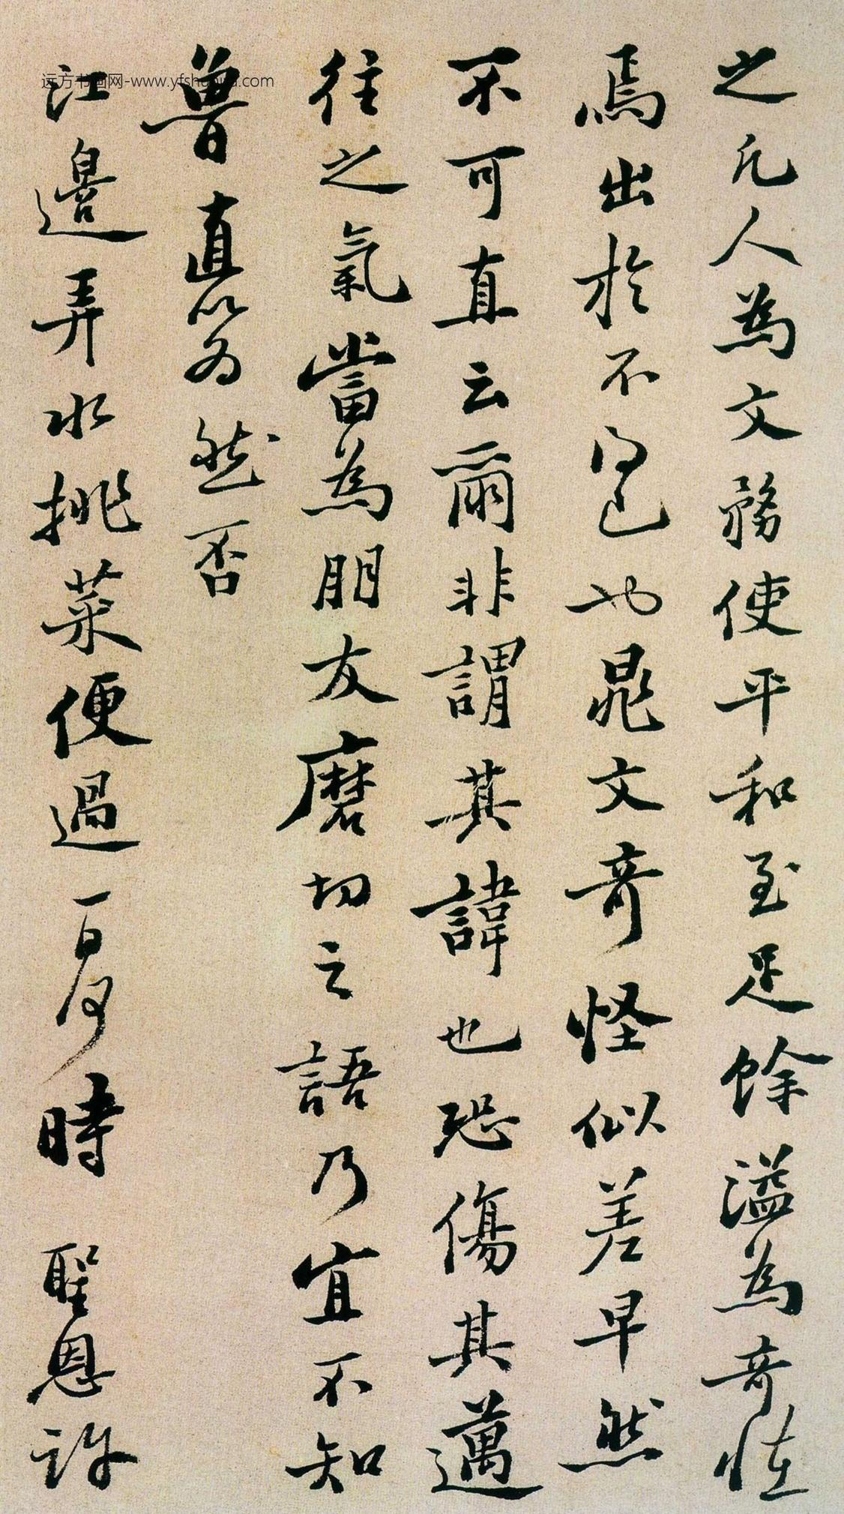 之凡人為文務使平和至足餘溢為奇怪
焉出於不得已也晁文奇怪似差早然
不可直云爾非謂其諱也恐傷其邁
往之氣當為朋友磨切之語乃宜不知
魯直以為然否
江邊弄水挑菜便過一日何時 聖恩許
远方书画网-www.yfshuhua.com